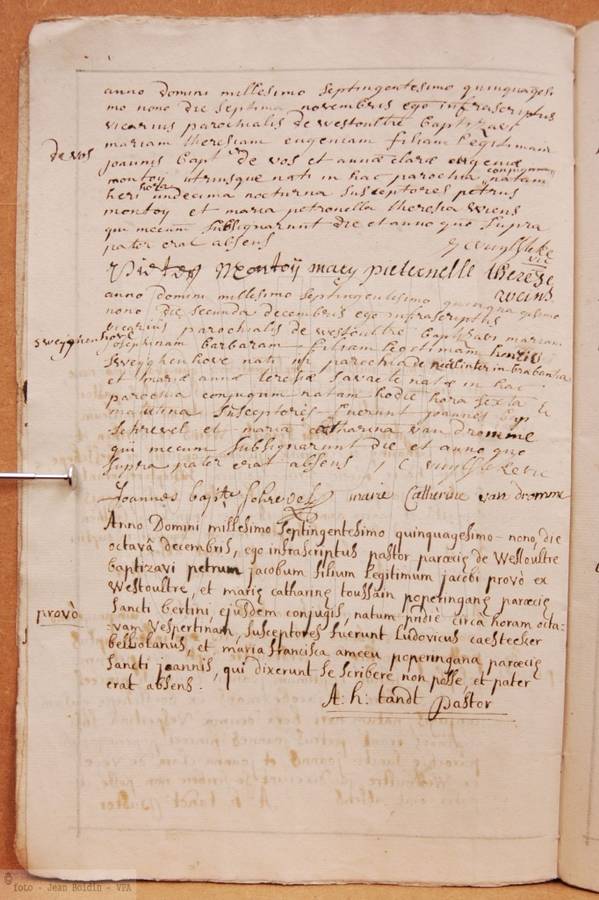 anno Domini millesimo septingentesimo quinquagesi
mo nono die septima novembris ego infrascriptus
vicarius parochialis de westoultre baptizavi
mariam theresiam eugeniam filiam legitimam
de vos
joannis bapt. de vos et annæ claræ eugeniæ
montoy utriusque nati in hac parochia conjugum natam
heri hora undecima nocturna susceptores petrus
montoy et maria petronella theresia wrens
qui mecum subsignarunt die et anno quo supra
pater erat absens
vic
Pieter Montoÿ marÿ pieternelle therese
weins
anno domini millesimo septingentesimo quinquagesimo
nono die secunda decembris ego infrascriptus
vicarius parochialis de westoultre baptizavi mariam
sweÿghenhove
josephinam barbaram filiam legitimam henrici
sweÿghenhove nati in parochia de in brabantia
et mariæ annæ teresiæ savaete natæ in hac
parochia conjugum natam hodie hora sexta
matutina susceptores fuerunt joannes bap
sehrevel et maria catharina van dromme
qui mecum subsignarunt die et anno quo
supra pater erat absens
Joannes bapte sehrevel marie Catherine van dromme
Anno Domini millesimo septingentesimo quinquagesimo-nono, die
octavâ decembris, ego infrascriptus pastor parœciæ de Westoultre
baptizavi petrum jacobum filium legitimum jacobi provò ex
Westoultre, et mariæ catharinæ toussain poperinganæ parœciæ
provò
sancti bertini, ejusdem conjugis, natum pridiè circa horam octa-
vam vespertinam, susceptores fuerunt ludovicus caestecker
bellolanus, et maria francisca ameeu poperingana parœciæ
sancti joannis, qui dixerunt se scribere non posse, et pater
erat absens.
A: h: tandt pastor
© foto - Jean Boidin - VPA